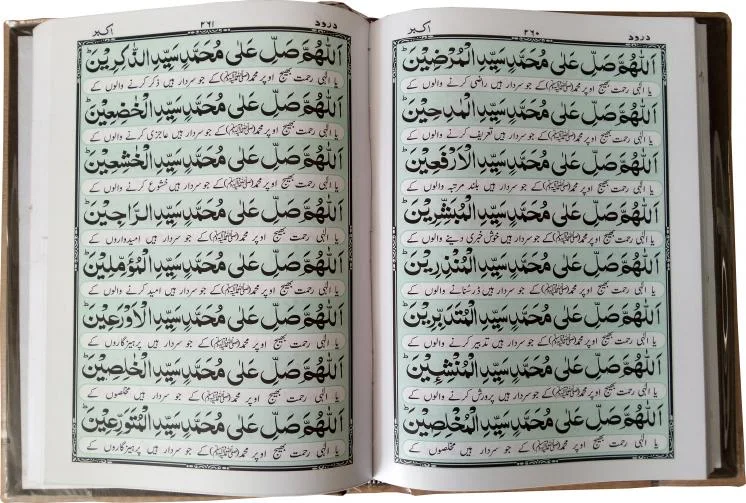 درود ٣٦٠ اکبر
اَللّٰهُمَّ صَلِّ عَلٰى مُحَمَّدٍ سَيِّدِ الْمُرْضِيْنَ ؕ
یا الٰہی رحمت بھیج اوپر محمد(ﷺ)کے جو سردار ہیں راضی کرنے والوں کے
اَللّٰهُمَّ صَلِّ عَلٰى مُحَمَّدٍ سَيِّدِ الْمَدِحِيْنَ ؕ
یا الٰہی رحمت بھیج اوپر محمد(ﷺ)کے جو سردار ہیں تعریف کرنے والوں کے
اَللّٰهُمَّ صَلِّ عَلٰى مُحَمَّدٍ سَيِّدِ الْاَرْفَعِيْنَ ؕ
یا الٰہی رحمت بھیج اوپر محمد(ﷺ)کے جو سردار ہیں بلند مرتبہ والوں کے
اَللّٰهُمَّ صَلِّ عَلٰى مُحَمَّدٍ سَيِّدِ الْمُبَشِّرِيْنَ ؕ
یا الٰہی رحمت بھیج اوپر محمد(ﷺ)کے جو سردار ہیں خوش خبری دینے والوں کے
اَللّٰهُمَّ صَلِّ عَلٰى مُحَمَّدٍ سَيِّدِ الْمُنْذِرِيْنَ ؕ
یا الٰہی رحمت بھیج اوپر محمد(ﷺ)کے جو سردار ہیں ڈر سنانے والوں کے
اَللّٰهُمَّ صَلِّ عَلٰى مُحَمَّدٍ سَيِّدِ الْمُتَدَبِّرِيْنَ ؕ
یا الٰہی رحمت بھیج اوپر محمد(ﷺ)کے جو سردار ہیں تدبیر کرنے والوں کے
اَللّٰهُمَّ صَلِّ عَلٰى مُحَمَّدٍ سَيِّدِ الْمُنْشِئِيْنَ ؕ
یا الٰہی رحمت بھیج اوپر محمد(ﷺ)کے جو سردار ہیں پرورش کرنے والوں کے
اَللّٰهُمَّ صَلِّ عَلٰى مُحَمَّدٍ سَيِّدِ الْمُخْلِصِيْنَ ؕ
یا الٰہی رحمت بھیج اوپر محمد(ﷺ)کے جو سردار ہیں مخلصوں کے
درود ٣٦١ اکبر
اَللّٰهُمَّ صَلِّ عَلٰى مُحَمَّدٍ سَيِّدِ الذّٰكِرِيْنَ ؕ
یا الٰہی رحمت بھیج اوپر محمد(ﷺ)کے جو سردار ہیں ذکر کرنے والوں کے
اَللّٰهُمَّ صَلِّ عَلٰى مُحَمَّدٍ سَيِّدِ الْخٰضِعِيْنَ ؕ
یا الٰہی رحمت بھیج اوپر محمد(ﷺ)کے جو سردار ہیں عاجزی کرنے والوں کے
اَللّٰهُمَّ صَلِّ عَلٰى مُحَمَّدٍ سَيِّدِ الْخٰشِعِيْنَ ؕ
یا الٰہی رحمت بھیج اوپر محمد(ﷺ)کے جو سردار ہیں خشوع کرنے والوں کے
اَللّٰهُمَّ صَلِّ عَلٰى مُحَمَّدٍ سَيِّدِ الرَّاجِيْنَ ؕ
یا الٰہی رحمت بھیج اوپر محمد(ﷺ)کے جو سردار ہیں امیدواروں کے
اَللّٰهُمَّ صَلِّ عَلٰى مُحَمَّدٍ سَيِّدِ الْمُؤَمِّلِيْنَ ؕ
یا الٰہی رحمت بھیج اوپر محمد(ﷺ)کے جو سردار ہیں امید کرنے والوں کے
اَللّٰهُمَّ صَلِّ عَلٰى مُحَمَّدٍ سَيِّدِ الْاَوْرَعِيْنَ ؕ
یا الٰہی رحمت بھیج اوپر محمد(ﷺ)کے جو سردار ہیں پرہیزگاروں کے
اَللّٰهُمَّ صَلِّ عَلٰى مُحَمَّدٍ سَيِّدِ الْخٰلِصِيْنَ ؕ
یا الٰہی رحمت بھیج اوپر محمد(ﷺ)کے جو سردار ہیں مخلصوں کے
اَللّٰهُمَّ صَلِّ عَلٰى مُحَمَّدٍ سَيِّدِ الْمُتَوَرِّعِيْنَ ؕ
یا الٰہی رحمت بھیج اوپر محمد(ﷺ)کے جو سردار ہیں پرہیزگاروں کے